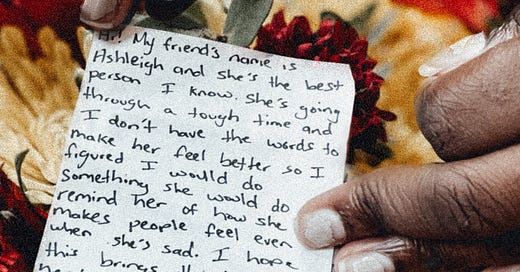 Hi! My friend's name is
Ashleigh and she's the best
person I know. She's going
through a tough time and
I don't have the words to
make her feel better so I
figured I would do
something she would do to
remind her of how she
makes people feel even
when she's sad. I hope
this brings